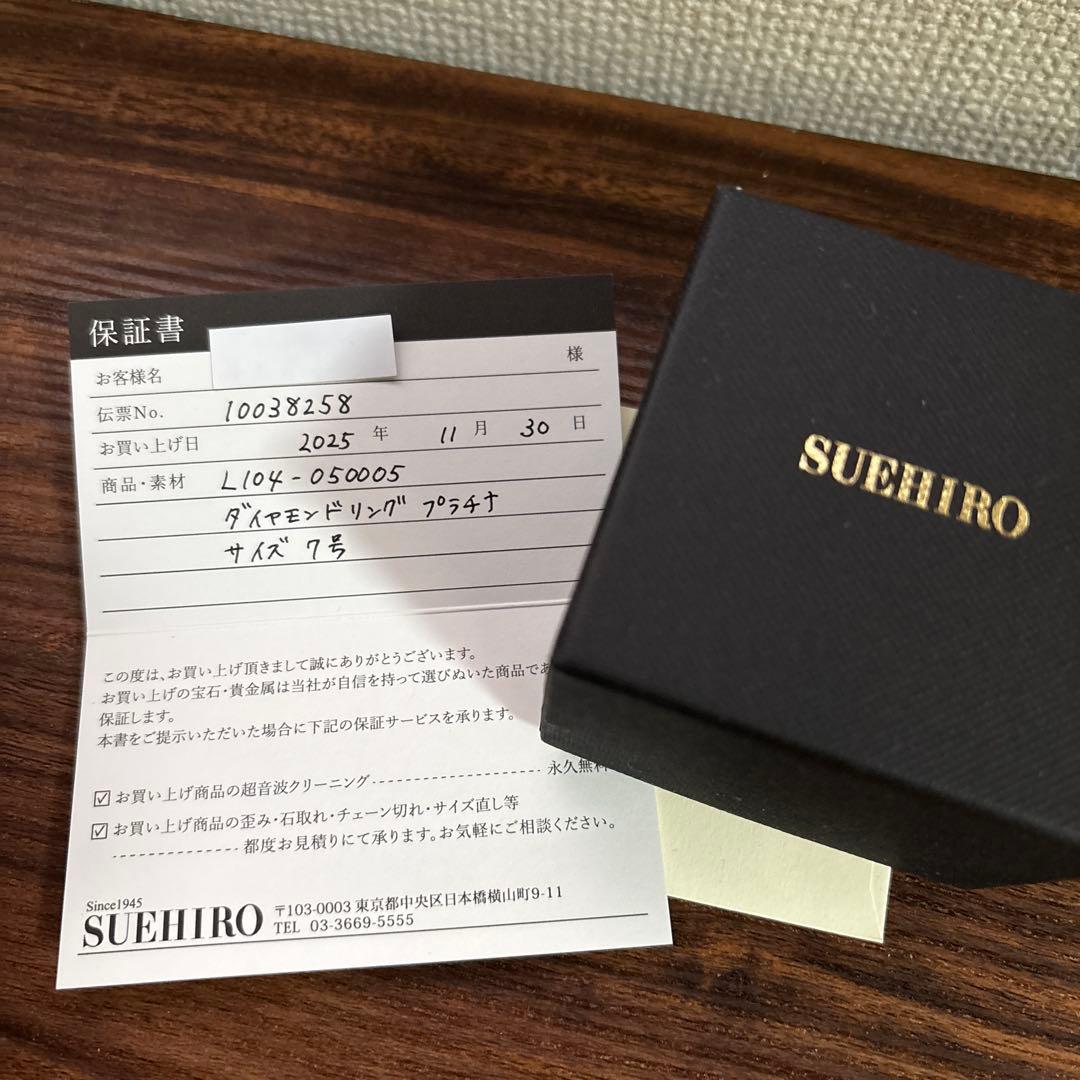 保証書
お客様名 様
伝票No. 10038258
お買い上げ日 2025 年 11 月 30 日
商品・素材 L104-050005
ダイヤモンドリング プラチナ
サイズ 7号
この度は、お買い上げ頂きまして誠にありがとうございます。
お買い上げの宝石・貴金属は当社が自信を持って選びぬいた商品であ
保証します。
本書をご提示いただいた場合に下記の保証サービスを承ります。
☑ お買い上げ商品の超音波クリーニング-------------------- 永久無料
☑ お買い上げ商品の歪み・石取れ・チェーン切れ・サイズ直し等
-------------- 都度お見積りにて承ります。お気軽にご相談ください。
Since1945
SUEHIRO
〒103-0003 東京都中央区日本橋横山町9-11
TEL 03-3669-5555
SUEHIRO